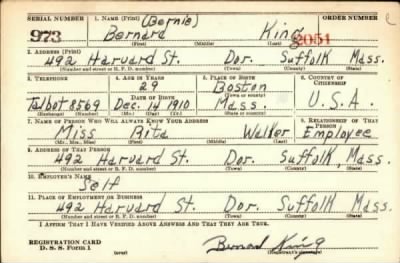 SERIAL NUMBER 1. NAME (Print) (Bernie) ORDER NUMBER
973 Bernard King 2051
(First) (Middle) (Last)
2. ADDRESS (Print)
492 Harvard St. Dor. Suffolk Mass.
(Number and street or R. F. D. number) (Town) (County) (State)
3. TELEPHONE 4. AGE IN YEARS 5. PLACE OF BIRTH 6. COUNTRY OF CITIZENSHIP
29 Boston
DATE OF BIRTH (Town or county)
Talbot 8569 Dec. 14 1910 Mass. U.S.A.
(Exchange) (Number) (Mo.) (Day) (Yr.) (State or country)
7. NAME OF PERSON WHO WILL ALWAYS KNOW YOUR ADDRESS 8. RELATIONSHIP OF THAT PERSON
Miss Rita Walker Employee
(Mr., Mrs., Miss) (First) (Middle) (Last)
9. ADDRESS OF THAT PERSON
492 Harvard St. Dor. Suffolk Mass.
(Number and street or R. F. D. number) (Town) (County) (State)
10. EMPLOYER'S NAME
Self
11. PLACE OF EMPLOYMENT OR BUSINESS
492 Harvard St. Dor. Suffolk Mass.
(Number and street or R. F. D. number) (Town) (County) (State)
I AFFIRM THAT I HAVE VERIFIED ABOVE ANSWERS AND THAT THEY ARE TRUE.
REGISTRATION CARD
D. S. S. Form 1 (over) Bernard King
(Registrant's signature)